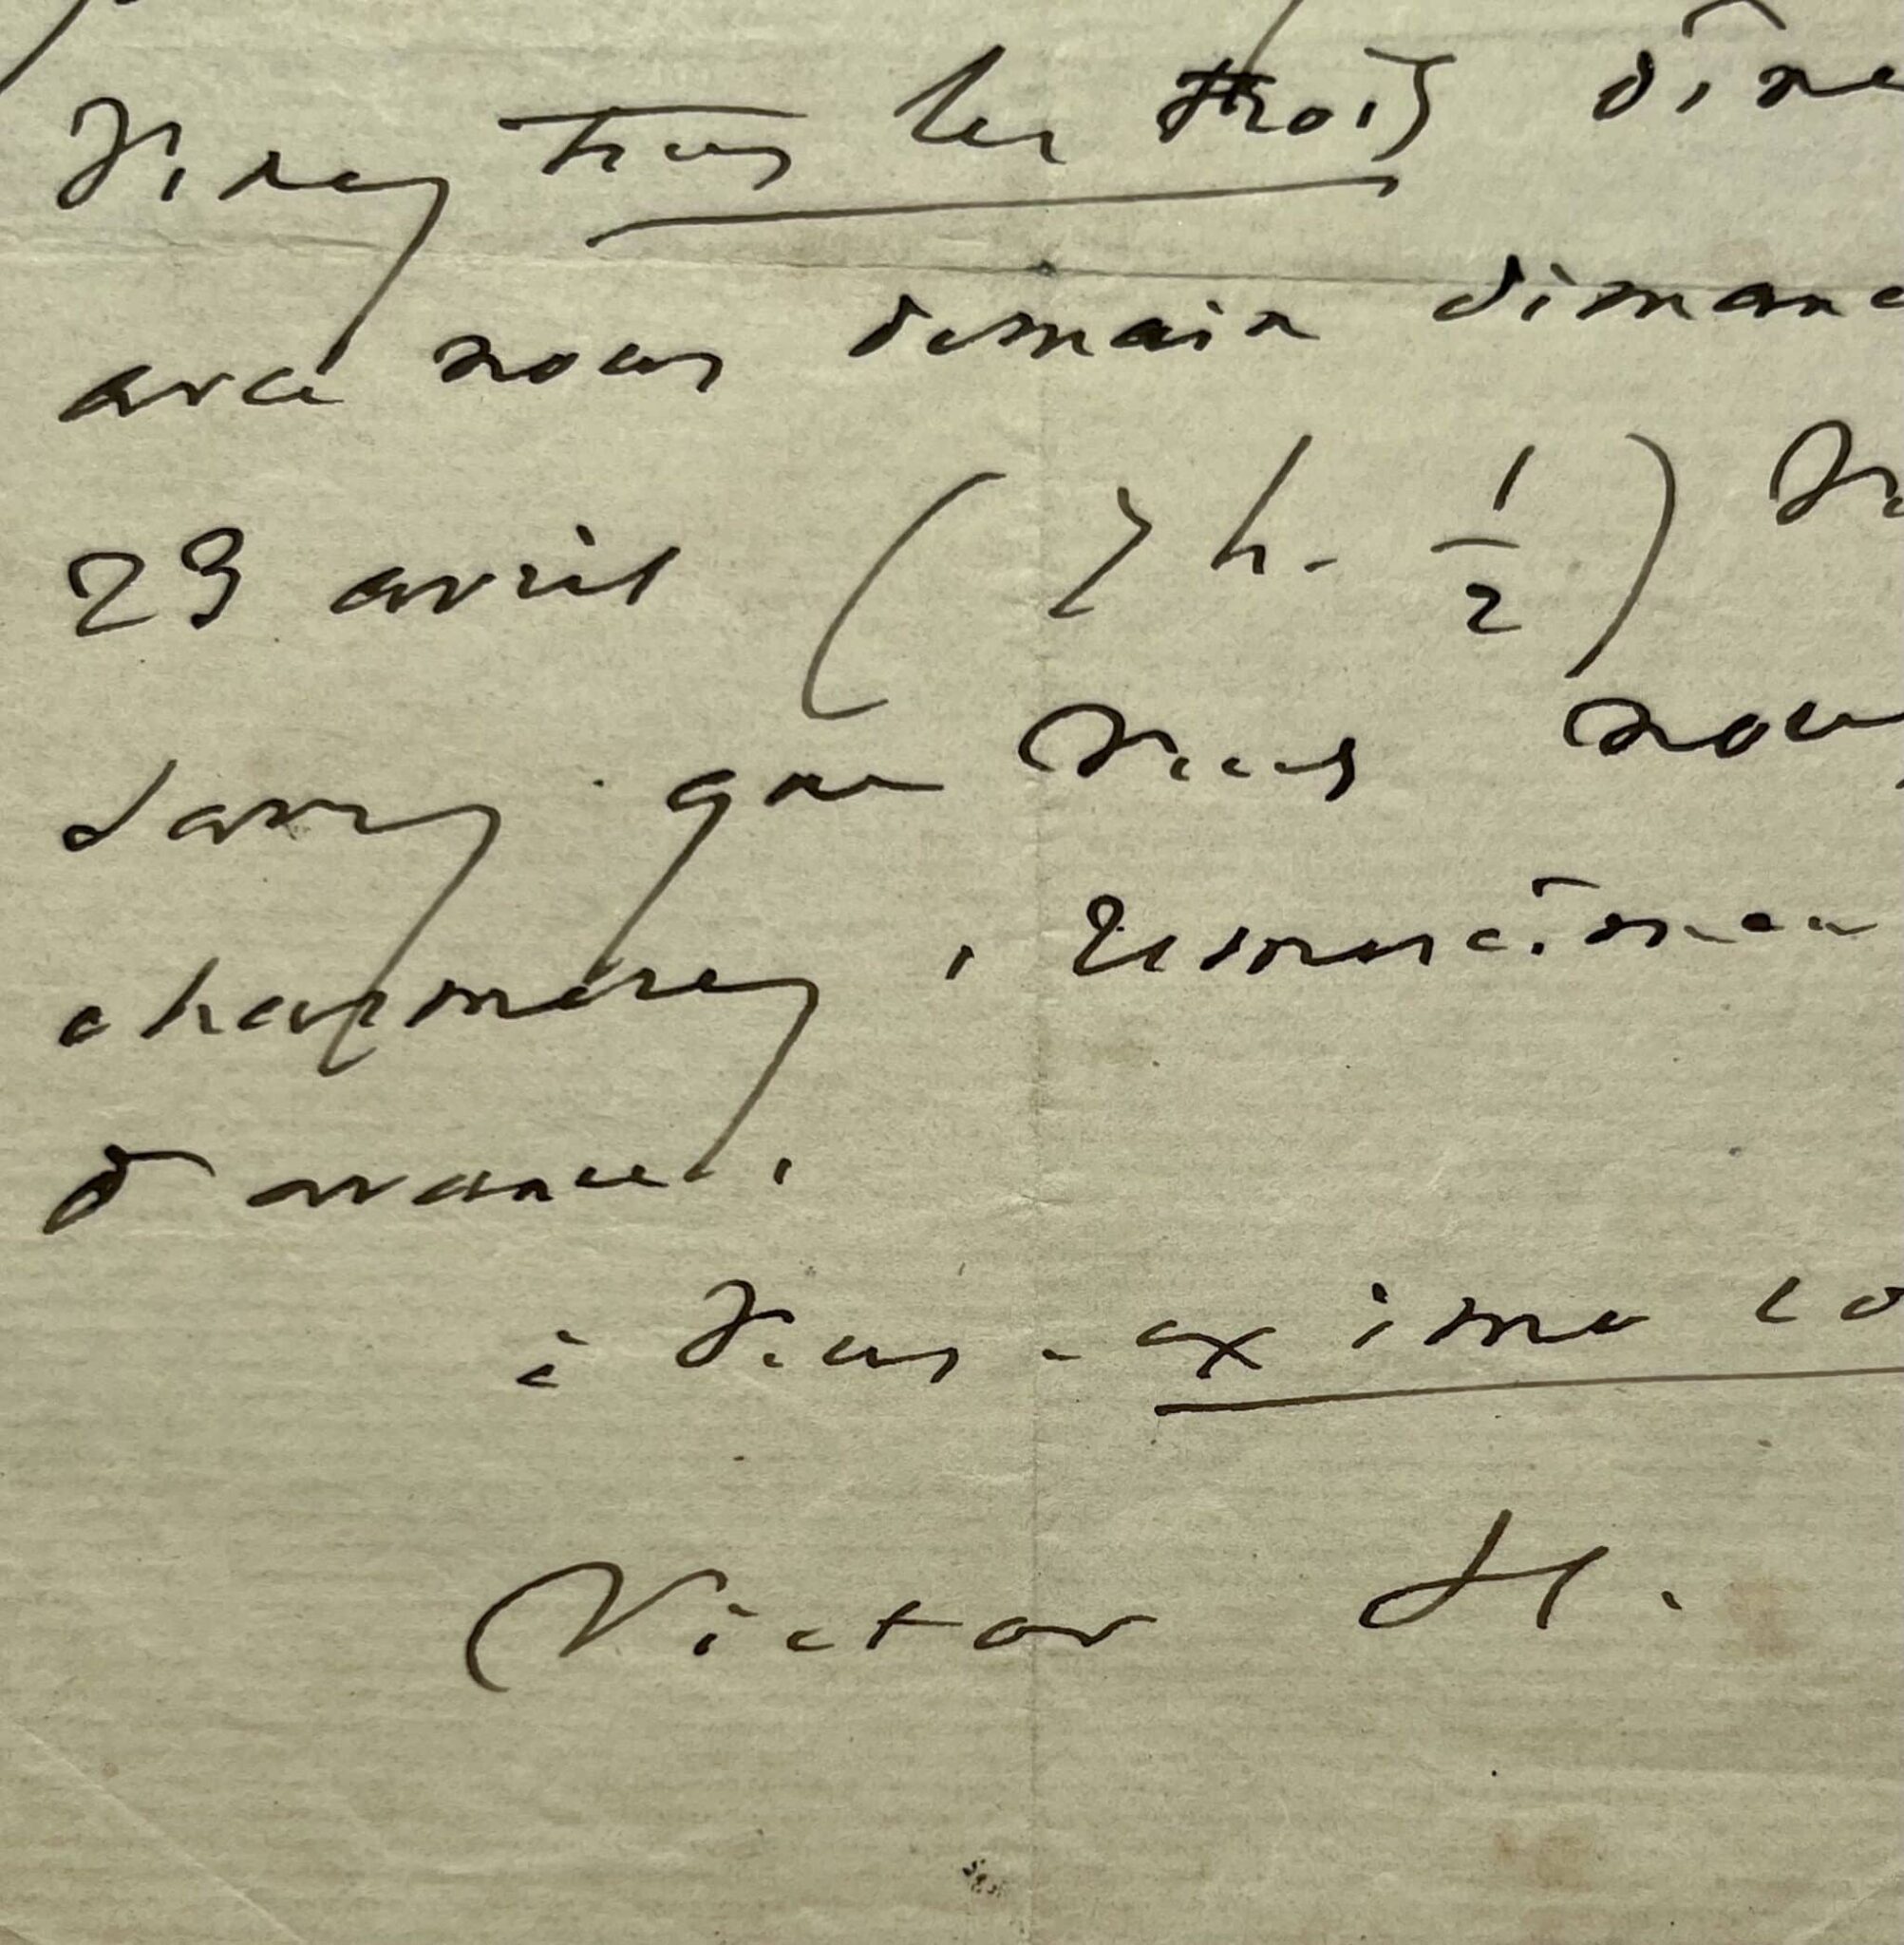 Venez tous les trois dîne
avec nous demain dimanc
23 avril (7 h. 1/2) V
savez que vous nou
charmerez, remercîmen
d'avance.
à vous - ex imo co
Victor H.